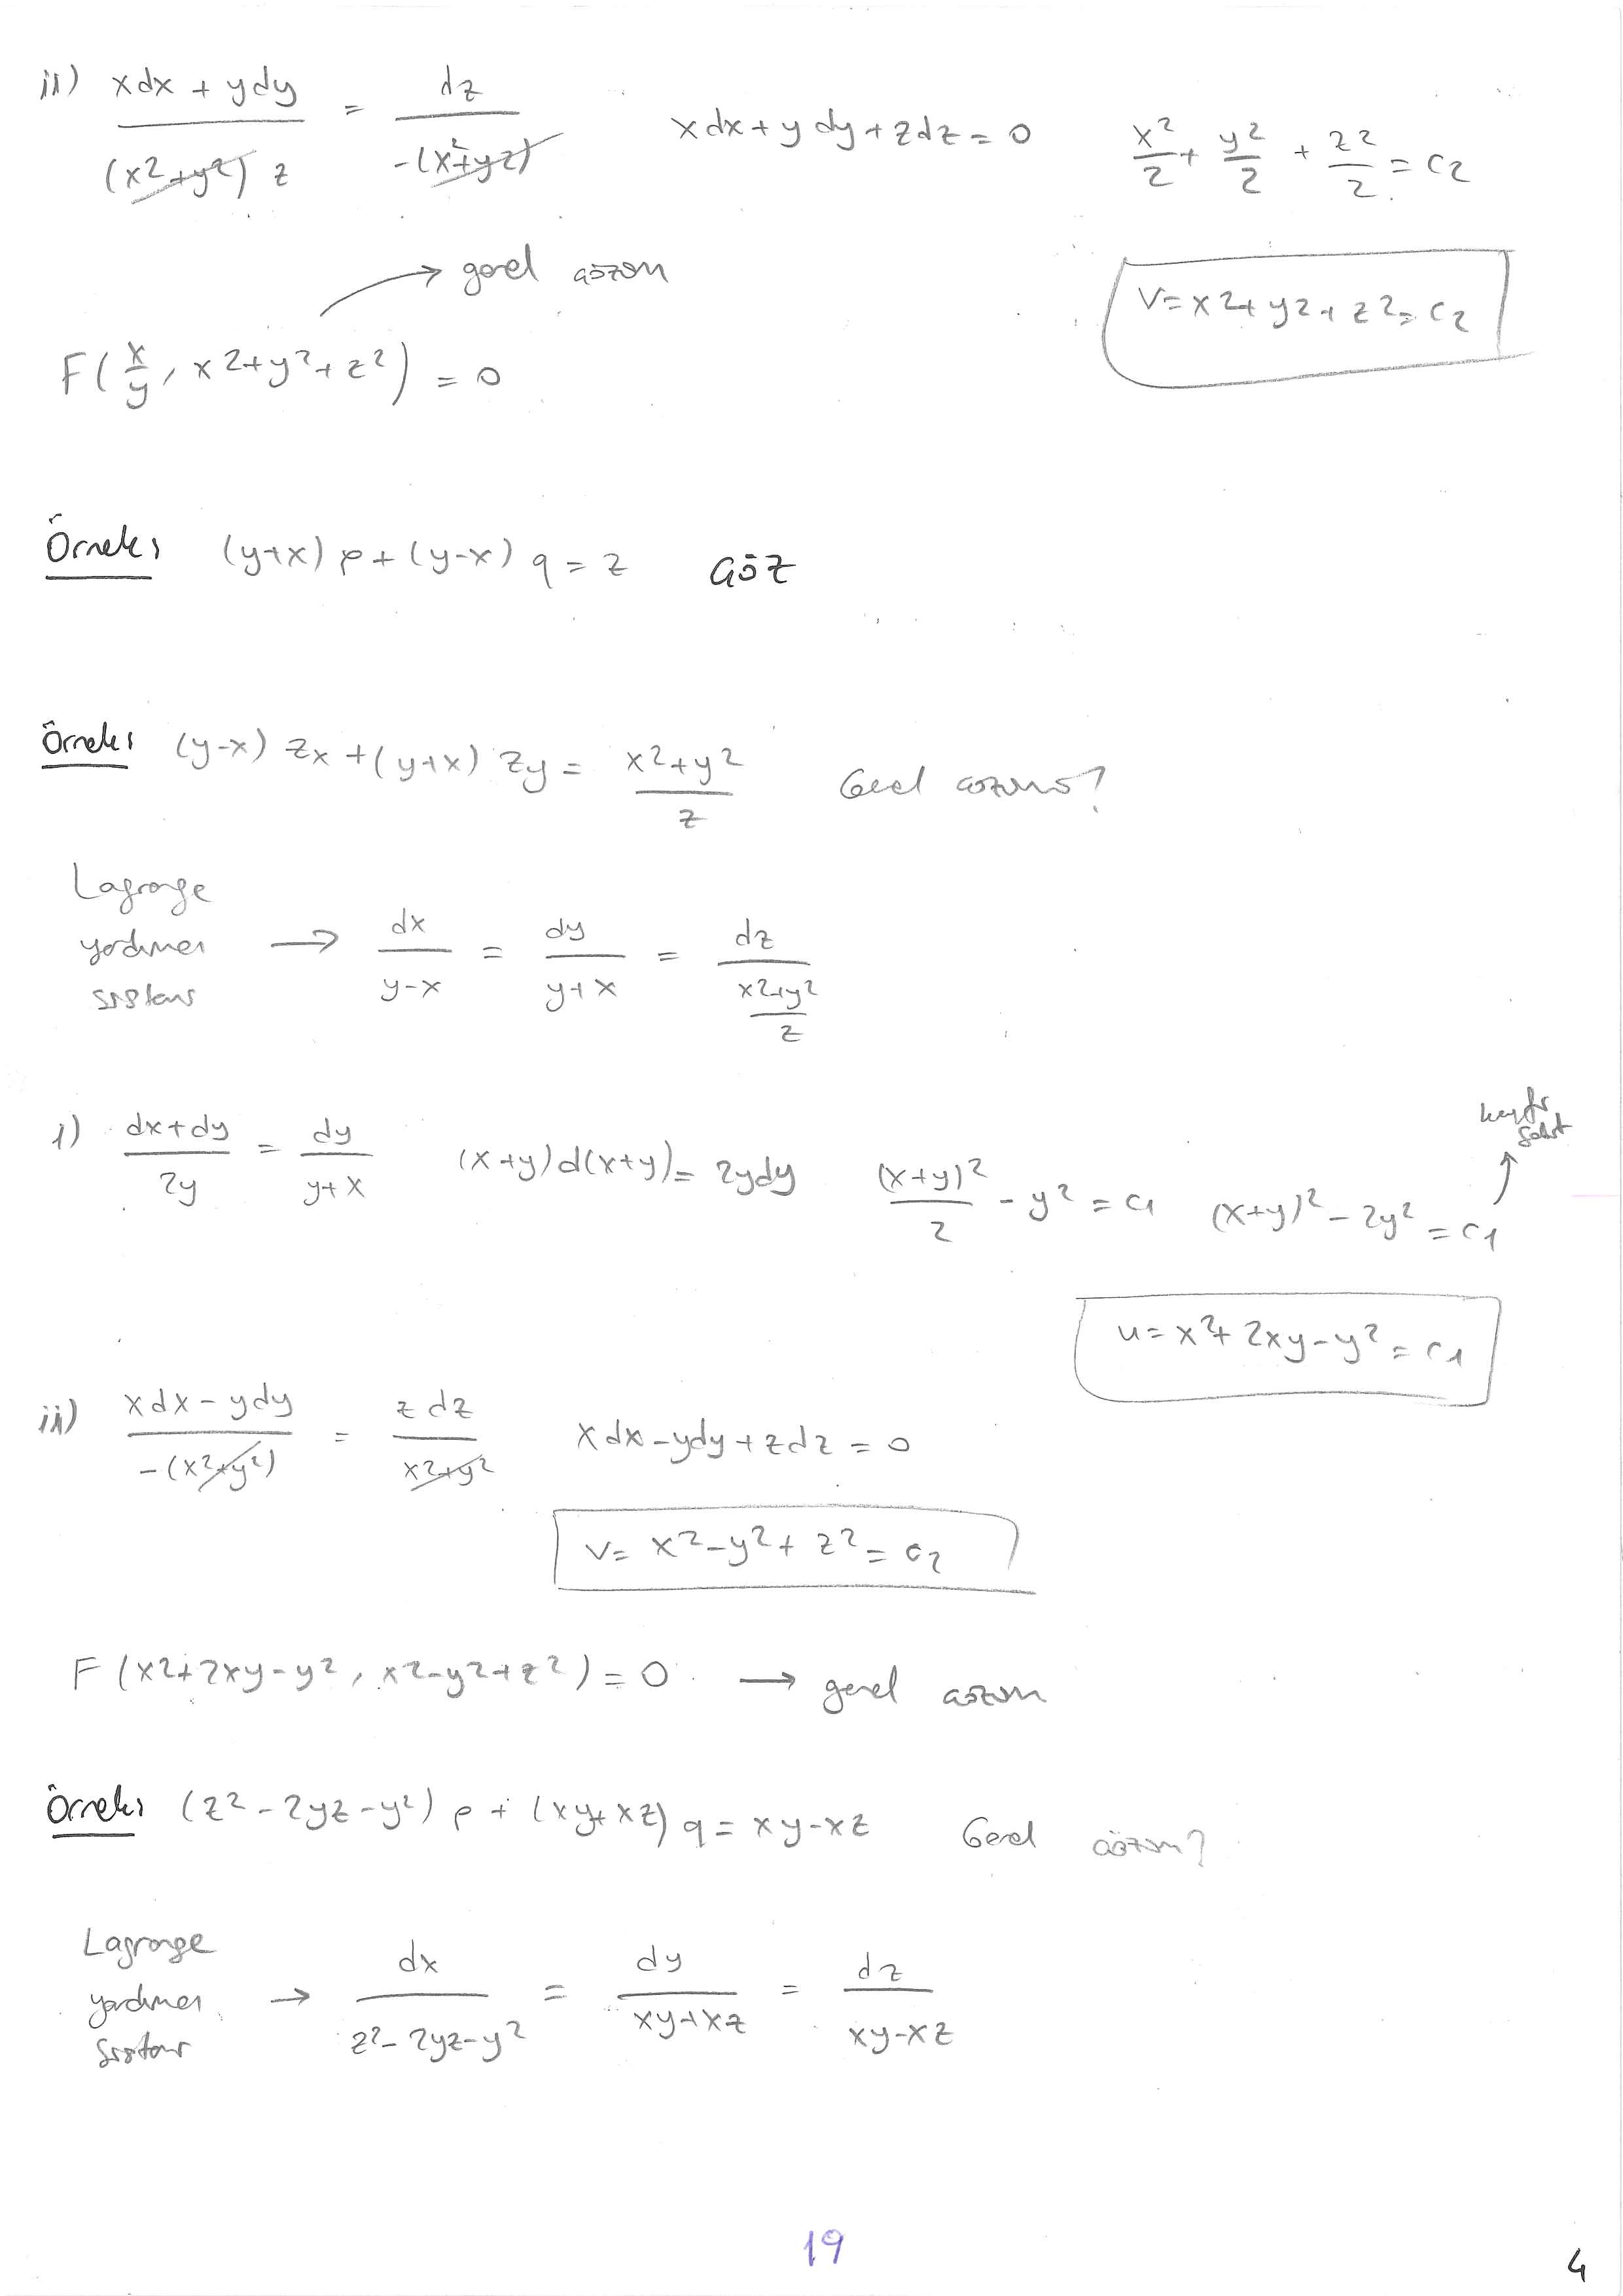 ii) (xdx + ydy)/((x²+y²) z) = dz/(-(x²+y²)) xdx + ydy + zdz = 0 x²/2 + y²/2 + z²/2 = c2
→ genel çözüm
V = x² + y² + z² = c2
F(x/y, x²+y²+z²) = 0
Örnek: (y+x) p + (y-x) q = z ÇÖZ
Örnek: (y-x) zx + (y+x) zy = (x²+y²)/z Genel çözümü?
Lagrange
yardımcı → dx/(y-x) = dy/(y+x) = dz/((x²+y²)/z)
sistemi
i) (dx+dy)/2y = dy/(y+x) (x+y)d(x+y) = 2ydy (x+y)²/2 - y² = c1 (x+y)² - 2y² = c1
keyfi
sabit
u = x² + 2xy - y² = c1
ii) (xdx - ydy)/(-(x²+y²)) = zdz/(x²+y²) xdx - ydy + zdz = 0
V = x² - y² + z² = c2
F(x²+2xy-y², x²-y²+z²) = 0 → genel çözüm
Örnek: (z² - 2yz - y²) p + (xy+xz) q = xy - xz Genel çözüm?
Lagrange
yardımcı → dx/(z²-2yz-y²) = dy/(xy+xz) = dz/(xy-xz)
sistemi
19
4